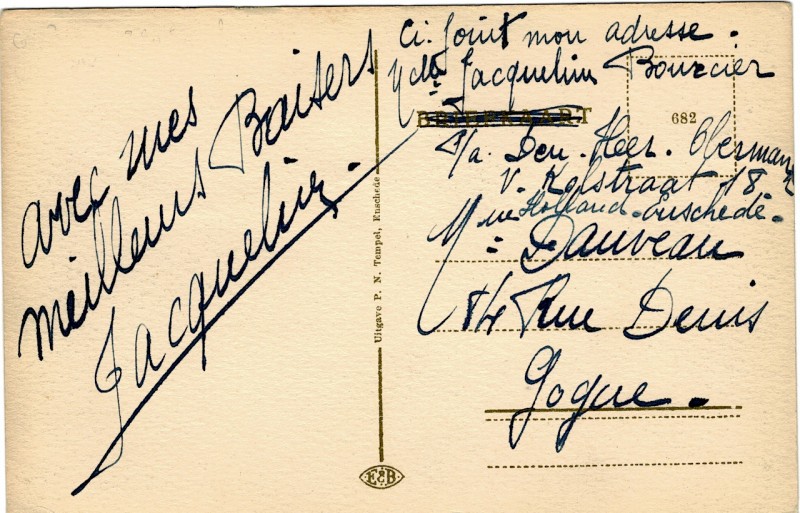 avec mes
meilleurs Baisers
Jacqueline.
Uitgave P. N. Tempel, Enschede
E&B
Ci. Joint mon adresse.
Jacqueline Bourcier
BRIEFKAART
682
p/a. Den. Heer. Oberman
v. Kolstraat 18
Holland-Enschedé-
Mme Dauveau
84 Rue Denis
Gogue.